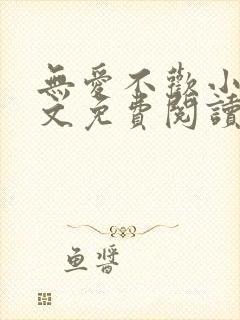 無愛不歡小
文免費閱讀
鱼醬